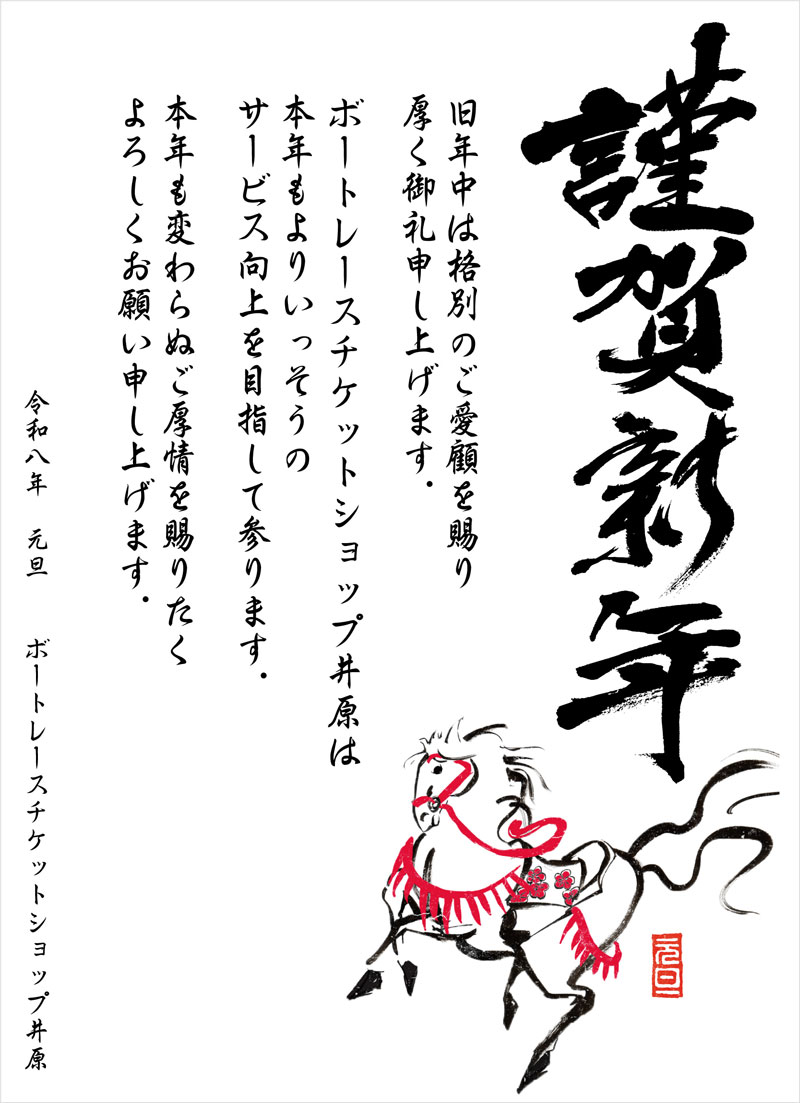 謹賀新年
旧年中は格別のご愛顧を賜り
厚く御礼申し上げます．
ボートレースチケットショップ井原は
本年もよりいっそうの
サービス向上を目指して参ります．
本年も変わらぬご厚情を賜りたく
よろしくお願い申し上げます．
令和八年　元旦　ボートレースチケットショップ井原
元旦